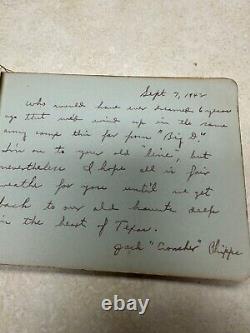 Sept 7, 1942
Who would have ever dreamed 6 years
ago that we'd wind up in the same
army camp this far from "Big D."
I'm on to your old "line", but
nevertheless I hope all is fair
weather for you until we get
back to our old haunts deep
in the heart of Texas.
Jack "Crasher" Phipps
ebay